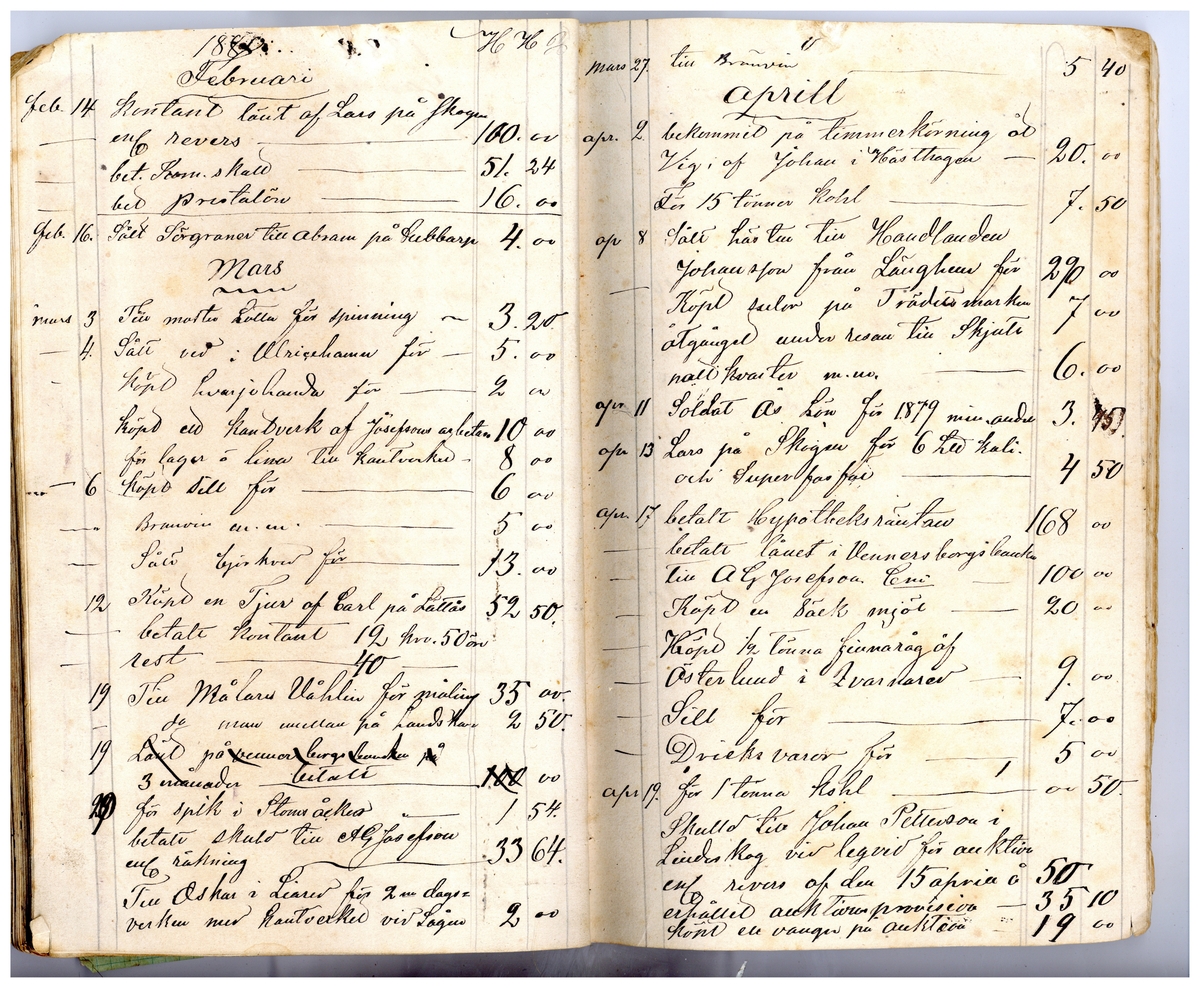 Februari
feb. 14 Kontant länt af Lars på Skogen
enl revers 100. 00
bet. Kom. skuld 51. 24
bet Prestalön 16. 00
feb. 16. Sålt Sörgraner till Abram på Kubbarp 4. 00
Mars
mars 3 Till moster Lotta för spinning 3. 20
4. Sålt ved i Ulricehamn för 5. 00
Köpt hvarjehanda för 2 00
Köpt ett Kantverk af Josefsons arbetare 10 00
för lager o lina till Kantverket 8 00
6 Köpt Sill för 6 00
Bränvin m.m. 5 00
Sålt björkved för 13. 00
12 Köpt en Tjur af Carl på Lättås 52 50.
betalt kontant 12 kro. 50 öre
rest 40
19 Till Målare Våhlin för måling 35 00.
do man emellan på Landskav 2 50.
19 Länt på venners borgs banken på
3 månader betalt 100 00
för spik i Stomsåcker 1 54.
betalt skuld till AG Josefson
enl räkning 33 64.
Till Oskar i Leared för 2 m dags=
verken med kantverket vid Sågen 2 00
Mars 27. till Bränvin 5 40
Aprill
apr. 2 bekommit på timmerkörning åt
Vig; af Johan i Hästhagen 20. 00
För 15 tönner kohl 7. 50
ap 8 Sålt hästen till Handlanden
Johansson från Länghem för 290 00
Köpt selor på Trädetsmarken 7 00
åtgånget under resan till Skjuts
nattkvarter m.m. 6. 00
apr 11 Soldat Ås Lön för 1879 min andel 3.
apr 13 Lars på Skogen för 6 Ltd kali.
och Superfosfat 4 50
apr. 17 betalt Hypotheksräntan 168 00
betalt länet i Venners borgs banken
till AG Josefson. 100 00
Köpt en Säck mjöl 20 00
Köpt 1/2 tönna finnaråg af
Österlund i Qvarnared 9. 00
Sill för 7. 00
Dricksvaror för 5 00
apr 19. för 1 tönna kohl 00 50.
Skulld till Johan Petterson i
Lindeskog vid legvid för auktion
enl revers af den 15 april å 50
erhållet auktionsprovision 35 10
köpt en vangn på auktion 19 00